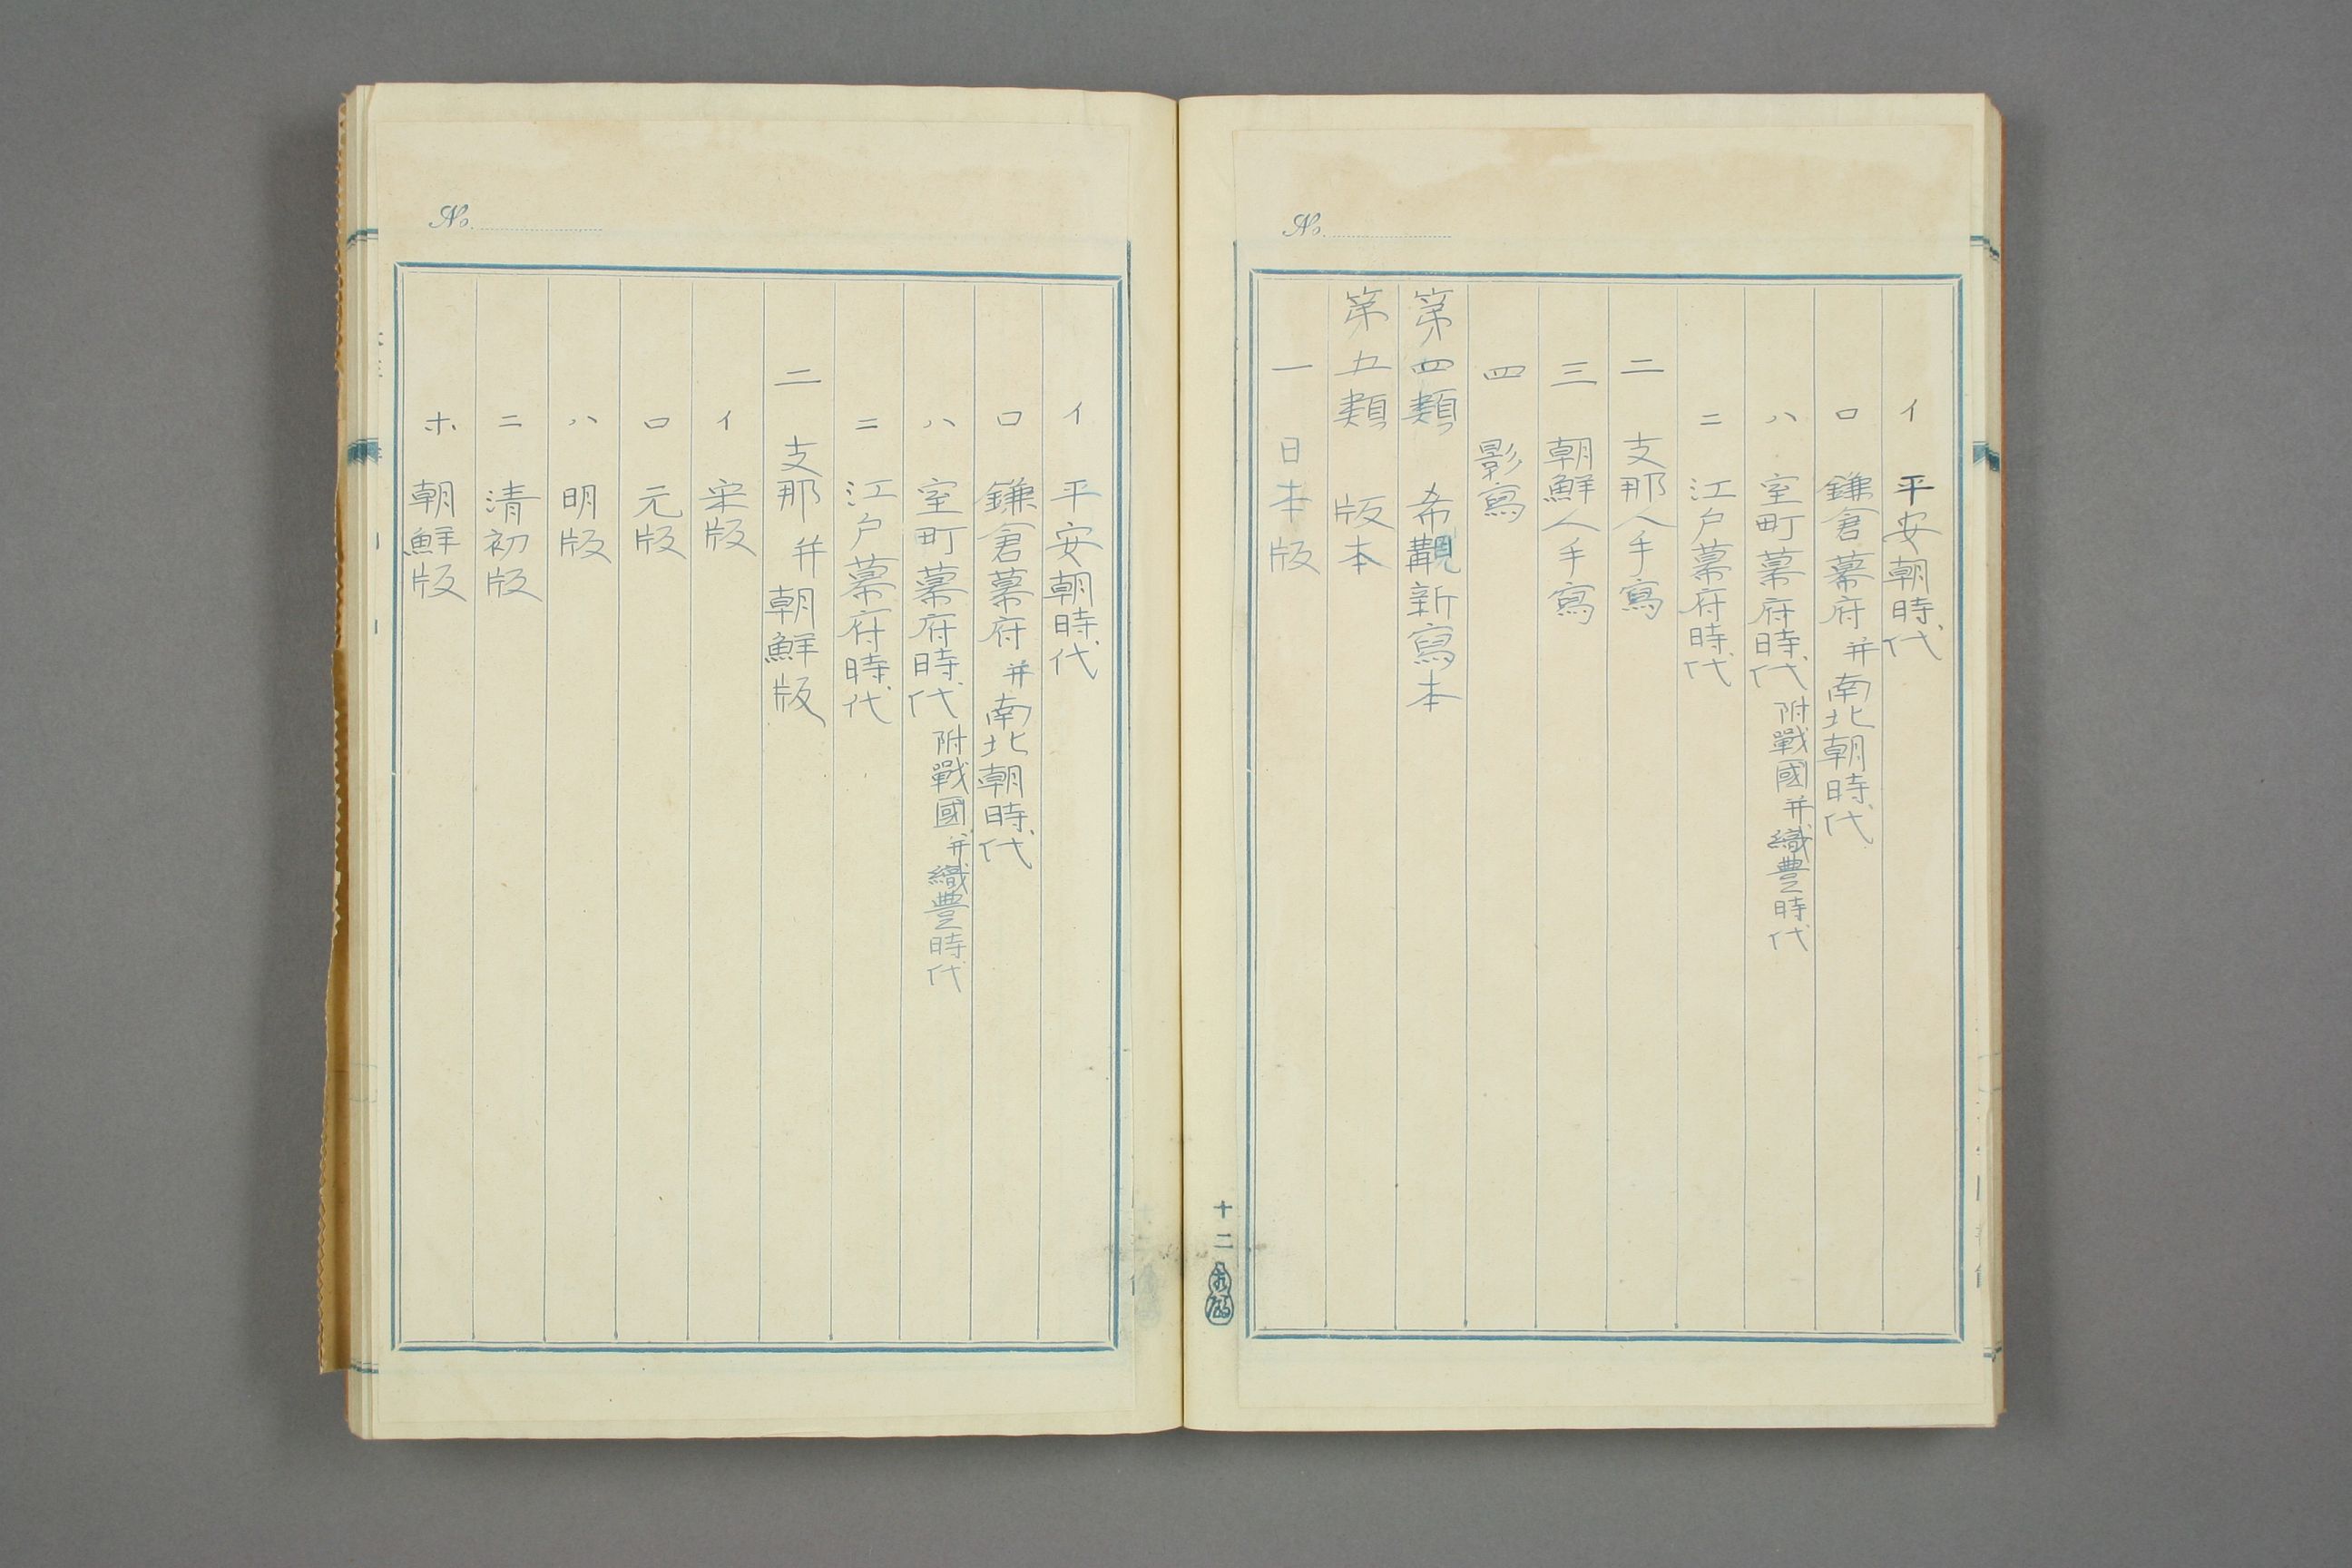 No.
イ 平安朝時代
ロ 鎌倉幕府并南北朝時代
ハ 室町幕府時代附戰國并織豊時代
ニ 江戸幕府時代
二 支那人手寫
三 朝鮮人手寫
四 影寫
第四類 希覯新寫本
第五類 版本
一 日本版
十二
No.
イ 平安朝時代
ロ 鎌倉幕府并南北朝時代
ハ 室町幕府時代附戰國并織豊時代
ニ 江戸幕府時代
二 支那并朝鮮版
イ 宋版
ロ 元版
ハ 明版
ニ 清初版
ホ 朝鮮版